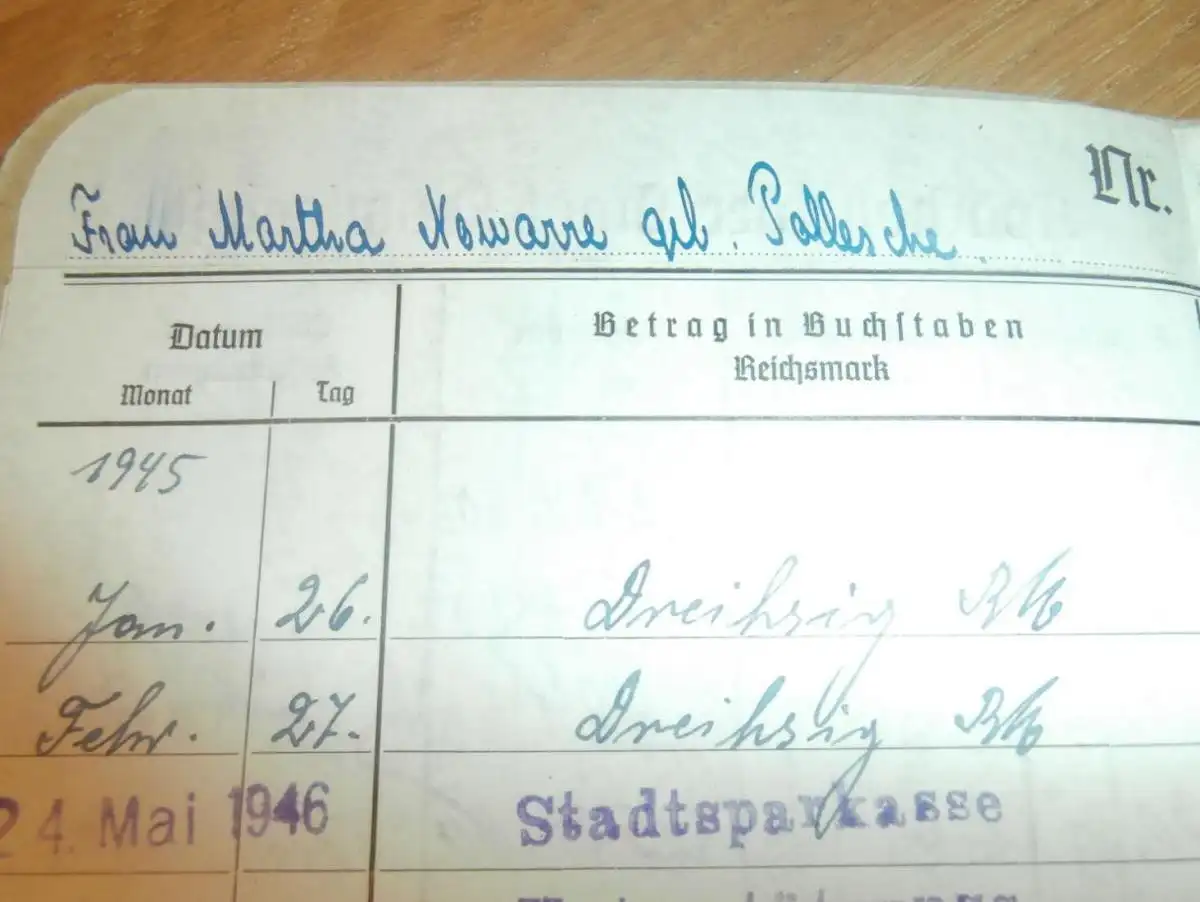 Nr.
Frau Martha Nowarre geb. Pallasche
Datum
Betrag in Buchstaben
Reichsmark
Monat Tag
1945
Jan. 26. Dreißig RM
Febr. 27. Dreißig RM
24. Mai 1946 Stadtsparkasse